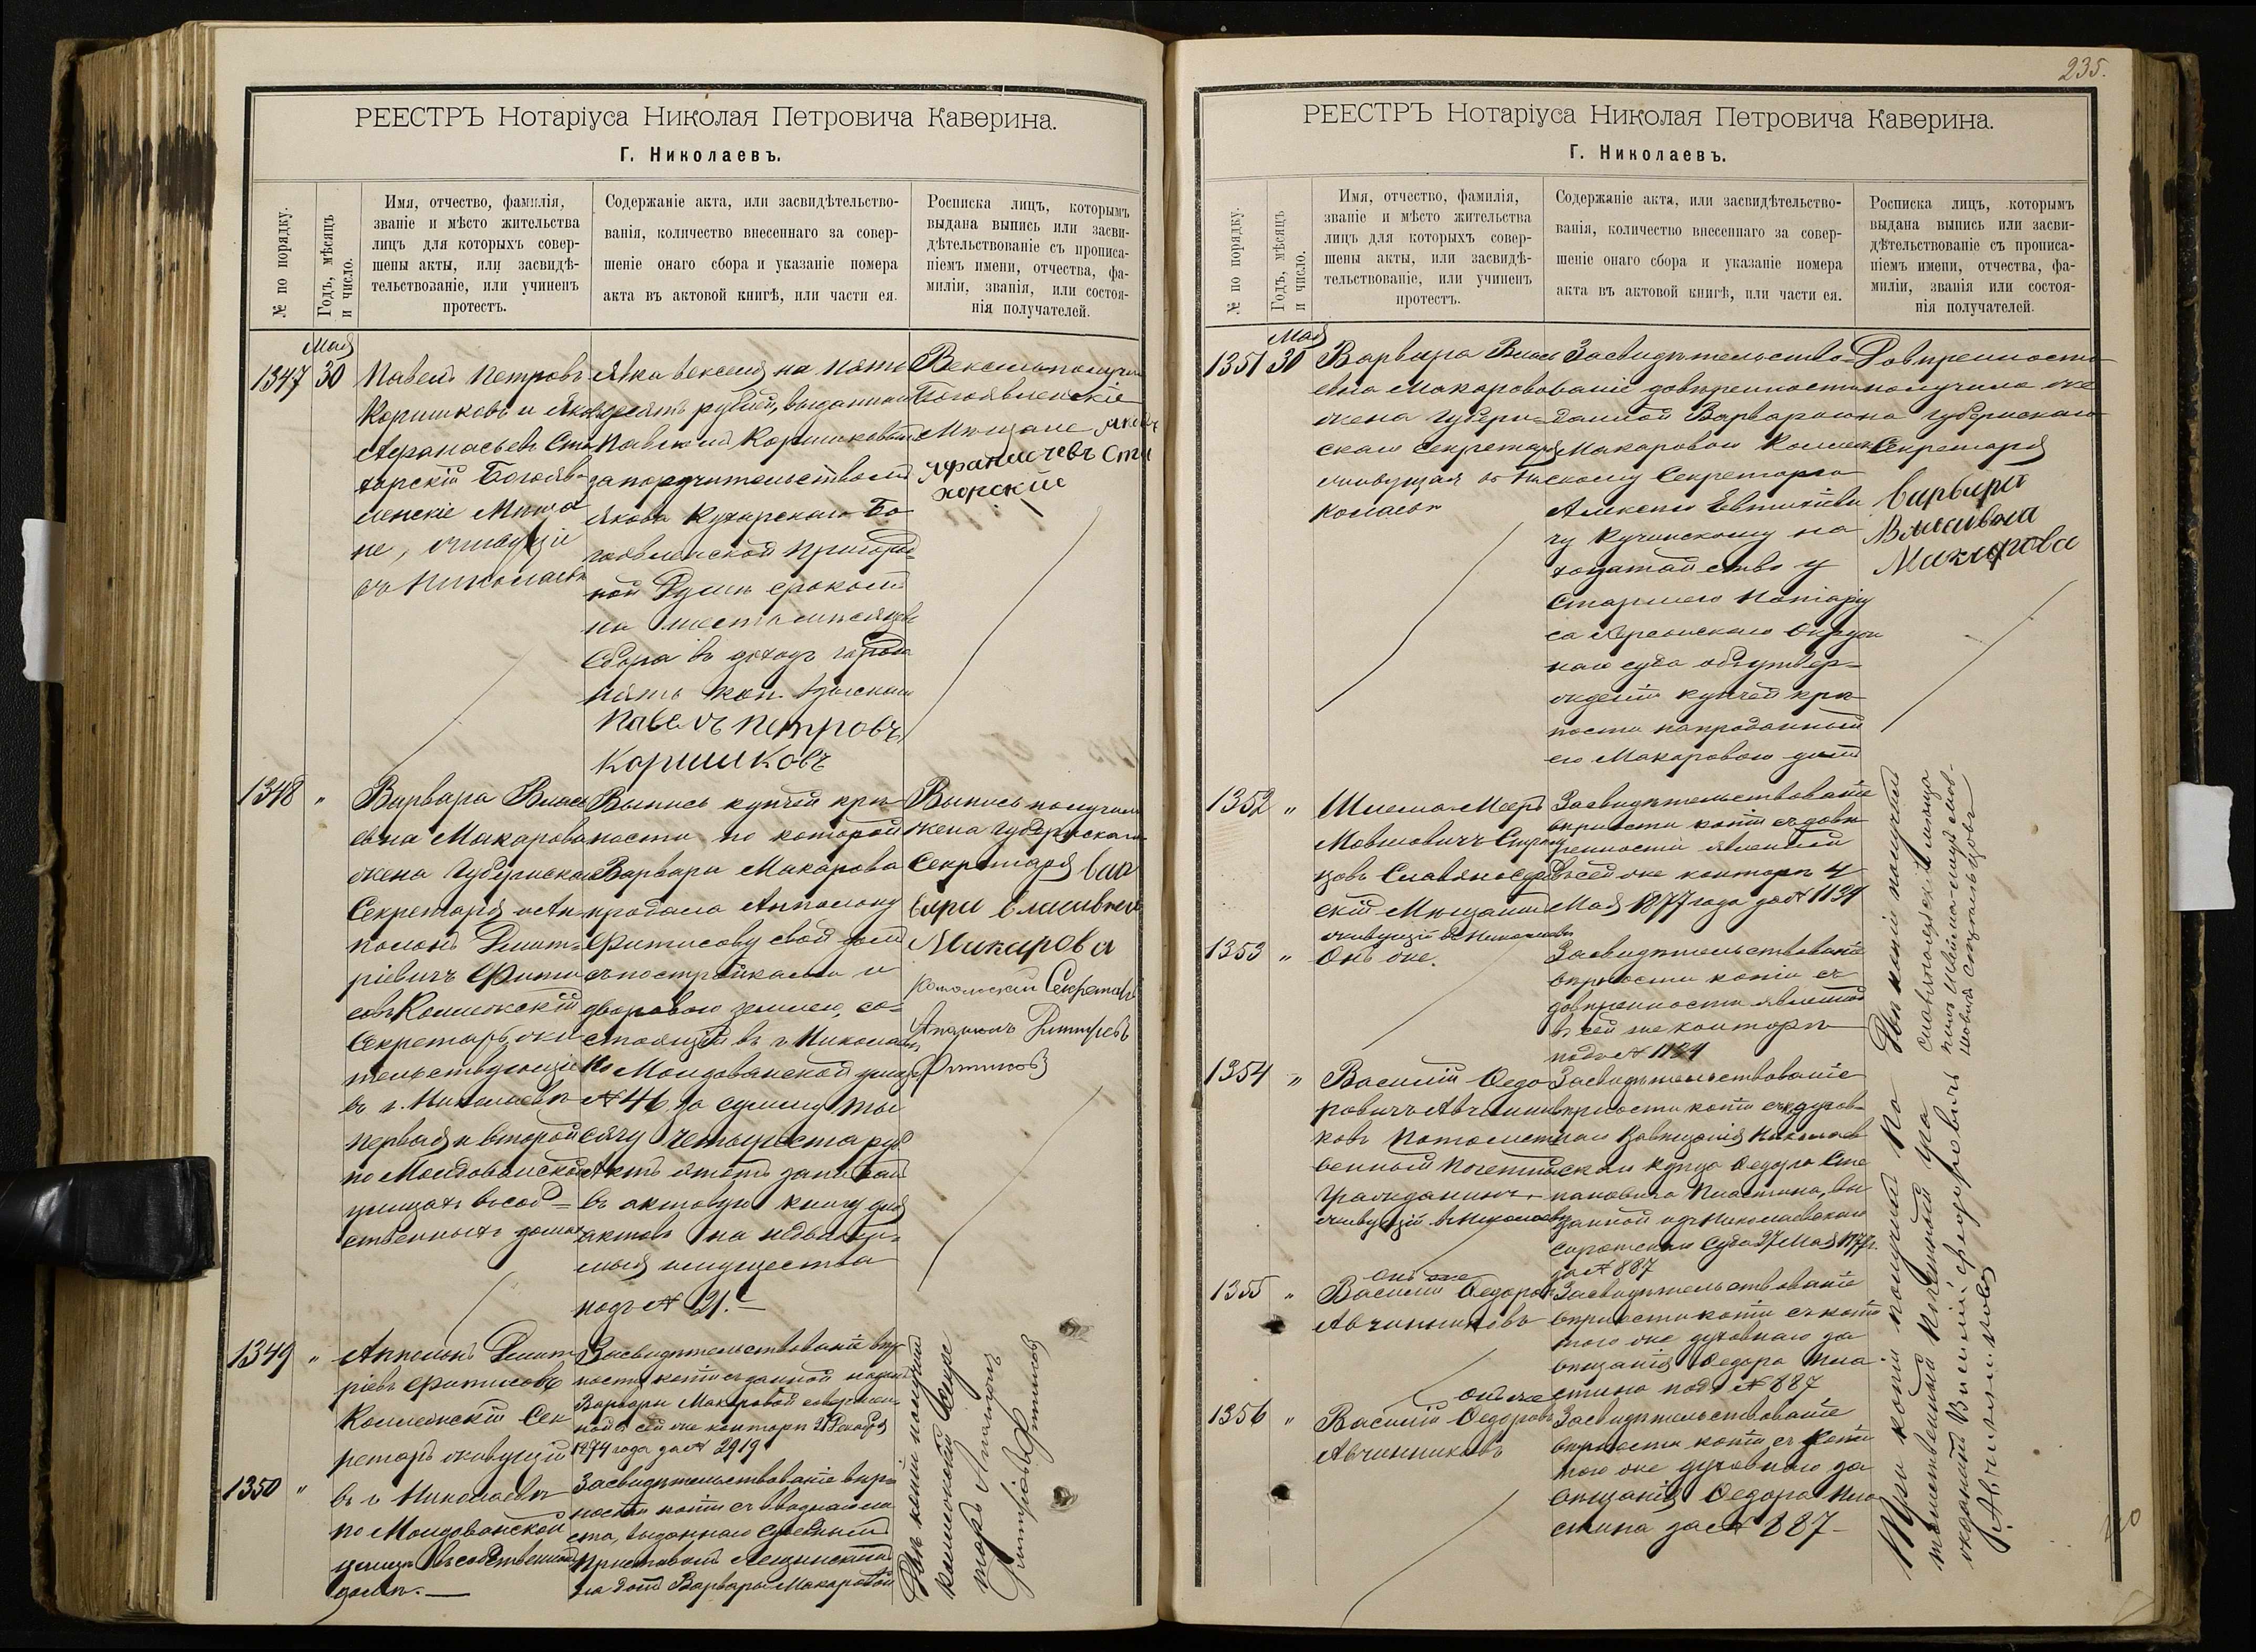 РЕЕСТРЪ Нотаріуса Николая Петровича Каверина.
Г. Николаевъ.
№ по порядку.
Годъ, мѣсяцъ
и число.
Имя, отчество, фамилія,
званіе и мѣсто жительства
лицъ для которыхъ совер-
шены акты, или засвидѣ-
тельствованіе, или учиненъ
протестъ.
Содержаніе акта, или засвидѣтельство-
ванія, количество внесеннаго за совер-
шеніе онаго сбора и указаніе номера
акта въ актовой книгѣ, или части ея.
Росписка лицъ, которымъ
выдана выпись или засви-
дѣтельствованіе съ прописа-
ніемъ имени, отчества, фа-
миліи, званія, или состоя-
нія получателей.
Мая
1347
30
Павелъ Петровъ
Коршиковъ и Яковъ
Афанасьевъ
Богояв-
ленскіе Мѣща
не, живущіе
въ Николаевѣ
Явка векселя на пять
десятъ рублей, выданнаго
Павломъ Коршиковымъ
за поручительствомъ
Якова
гоявленской Пригород
ной Думѣ срокомъ
на шесть мѣсяцевъ
Сбора въ доходъ города
пять коп. взыскано
Павелъ Петровъ
Коршиковъ
Вексель получи
Богоявленскіе
Мѣщане
1348
"
Варвара Влась
евна Макарова
жена Губернскаго
Секретаря и Ап
полонъ Дмит-
ріевичъ Фити
совъ Коллежскій
Секретарь жи
тельствующіе
въ г. Николаевѣ
первая и второй
по Молдованской
улицахъ въ соб-
ственныхъ домахъ
Выпись купчей крѣ
пости по которой
Варвара Макарова
продала Апполону
Фитисову свой домъ
съ постройками и
дворовою землею, со-
стоящій въ г. Николаевѣ
по Молдованской улицѣ
№ 46 за сумму ты
сячу четыреста руб
Актъ этотъ записанъ
въ актовую книгу для
актовъ на недвижи-
мыя имущества
подъ № 21.
Выпись получили
жена Губернскаго
Секретаря Вар
вара Власивна
Макарова
Секретарь
1349
"
Апполонъ Дмит
ріевъ Фитисовъ
Коллежскій Сек
ретарь живущій
Засвидѣтельствованіе вѣр
ности копіи съ данной
Варвары Макаровой совершен
ной въ сей же конторѣ 21 Декабря
1874 года за № 2919
1350
"
въ г Николаевѣ
по Молдованской
улицѣ въ собственномъ
домѣ.
Засвидѣтельствованіе вѣр-
ности копіи съ вводнаго ли
ста, выданнаго Судебнымъ
Приставомъ Лещинскимъ
на домъ Варвары Макаровой
Двѣ копіи получилъ
коллежскій Секре
тарь Аполонъ
235.
РЕЕСТРЪ Нотаріуса Николая Петровича Каверина.
Г. Николаевъ.
№ по порядку.
Годъ, мѣсяцъ
и число.
Имя, отчество, фамилія,
званіе и мѣсто жительства
лицъ для которыхъ совер-
шены акты, или засвидѣ-
тельствованіе, или учиненъ
протестъ.
Содержаніе акта, или засвидѣтельство-
ванія, количество внесеннаго за совер-
шеніе онаго сбора и указаніе номера
акта въ актовой книгѣ, или части ея.
Росписка лицъ, которымъ
выдана выпись или засви-
дѣтельствованіе съ прописа-
ніемъ имени, отчества, фа-
миліи, званія или состоя-
нія получателей.
Мая
1351
30
Варвара Влась
евна Макарова
жена Губерн-
скаго Секретаря
живущая въ Ни
колаевѣ
Засвидѣтельство
ваніе довѣренности
данной Варварою
Макаровою Коллеж
скому Секретарю
Алексѣю Евтихіеви
чу Кучинскому на
ходатайство у
Старшаго Нотаріу
са Херсонскаго Окруж
наго суда объ утвер-
жденіи купчей крѣ
пости на проданный
ею Макаровою домъ
Довѣренность
получила же
на Губернскаго
Секретаря
Варвара
Власивна
Макарова
1352
"
Шлема-Мееръ
Мовшовичъ
Славяносерб
скій Мѣщанинъ
живущій въ Николаевѣ
Засвидѣтельствованіе
вѣрности копіи съ довѣ
ренности явленной
въ сей же конторѣ 4
Мая 1877 года за № 1134
1353
"
Онъ же.
Засвидѣтельствованіе
вѣрности копіи съ
довѣренности явленной
въ сей же конторѣ
подъ № 1134
Двѣ копіи получилъ
1354
"
Василій Ѳедо
ровичъ Авчинни
ковъ Потомст
венный Почетный
Гражданинъ
живущій въ Николаевѣ
Засвидѣтельствованіе
вѣрности копіи съ духов-
наго Завѣщанія Николаев
скаго купца Ѳедора Сте
пановича Пластина, вы
данной изъ Николаевскаго
Сиротскаго Суда 27 Мая 1877 г.
за № 887
1355
"
онъ же
Василій Ѳедоровъ
Авчинниковъ
Засвидѣтельствованіе
вѣрности копіи съ копіи
того же духовнаго за
вѣщанія Ѳедора Пла-
стина подъ № 887
1356
"
онъ же
Василій Ѳедоровъ
Авчинниковъ
Засвидѣтельствованіе
вѣрности копіи съ копіи
того же духовнаго за
вѣщанія Ѳедора Пла
стина за № 887
Три копіи получилъ по
томственный почетный гра
жданинъ Василій Федоровичъ
Авчинниковъ